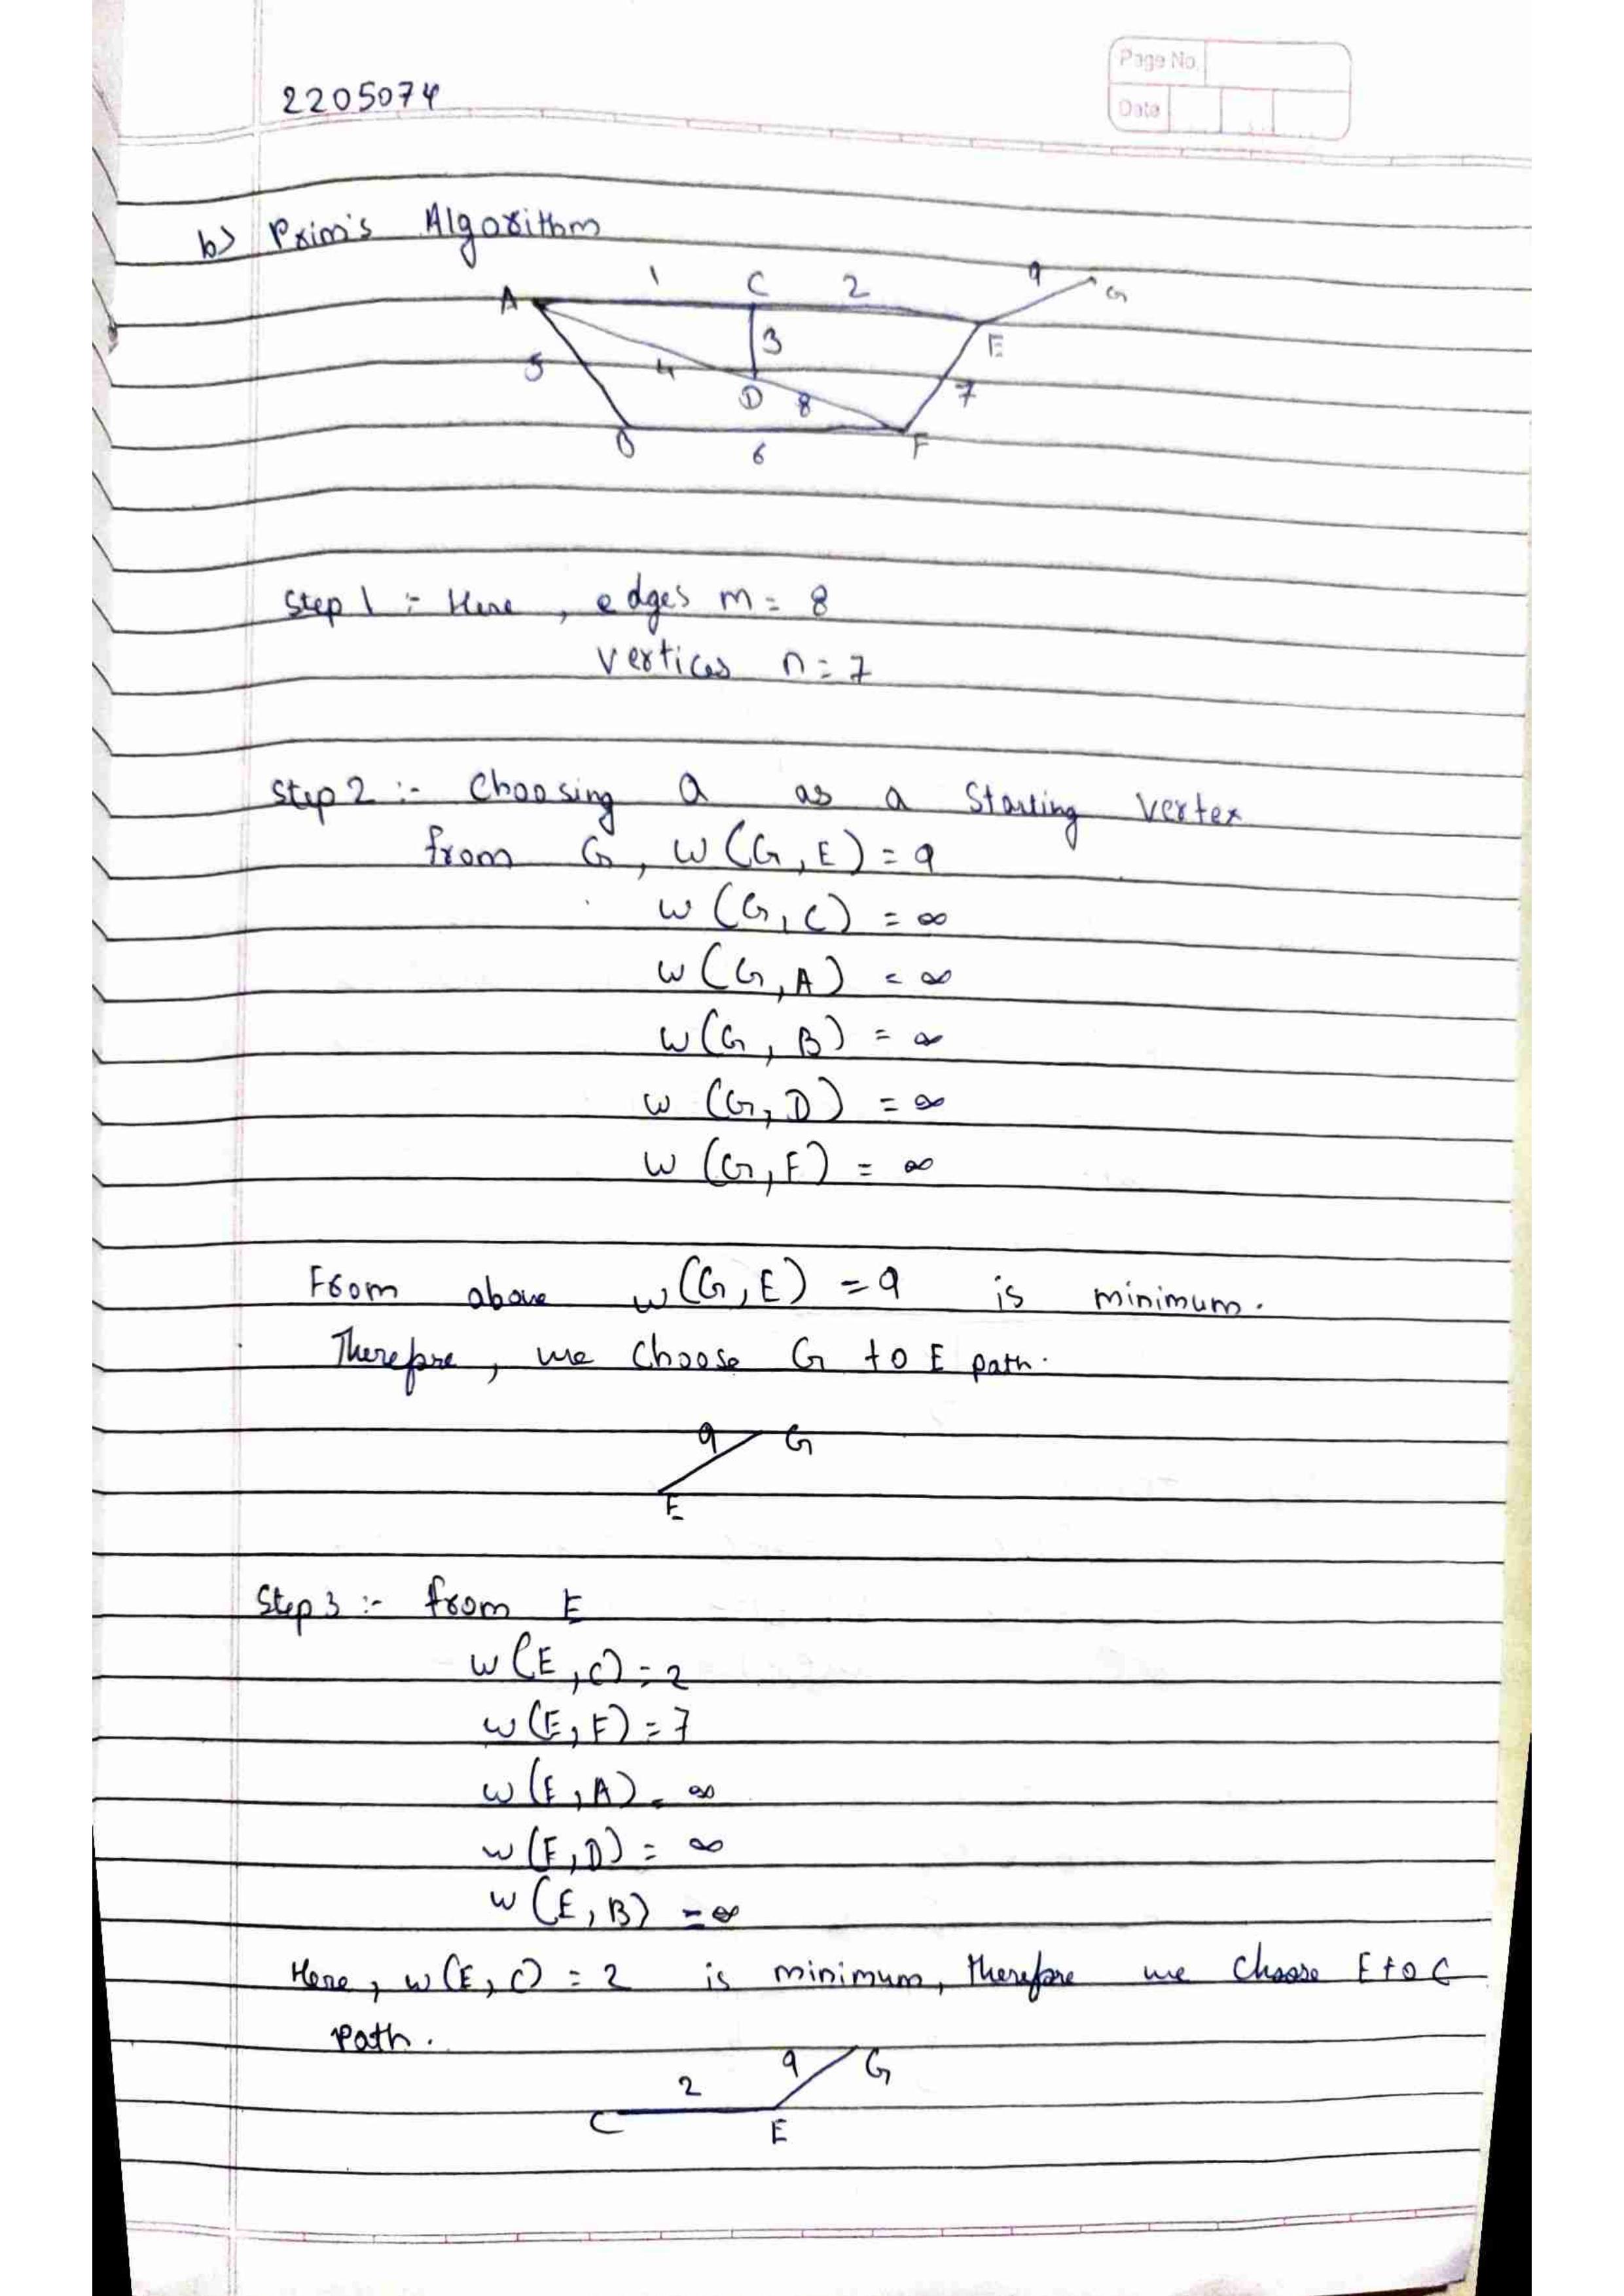 Page No.
Date
2205074
b> Prim's Algorithm
A 1 C 2 9 G
3 E
5 4 D 8 7
B 6 F
Step 1 :- Here, edges m = 8
Vertices n = 7
Step 2 :- Choosing a as a Starting Vertex
from G, w(G, E) = 9
w(G, C) = ∞
w(G, A) = ∞
w(G, B) = ∞
w(G, D) = ∞
w(G, F) = ∞
From above w(G, E) = 9 is minimum.
Therefore, we choose G to E path.
9 G
E
Step 3 :- from E
w(E, C) = 2
w(E, F) = 7
w(E, A) = ∞
w(E, D) = ∞
w(E, B) = ∞
Here, w(E, C) = 2 is minimum, therefore we choose E to C
Path.
2 9 G
C E